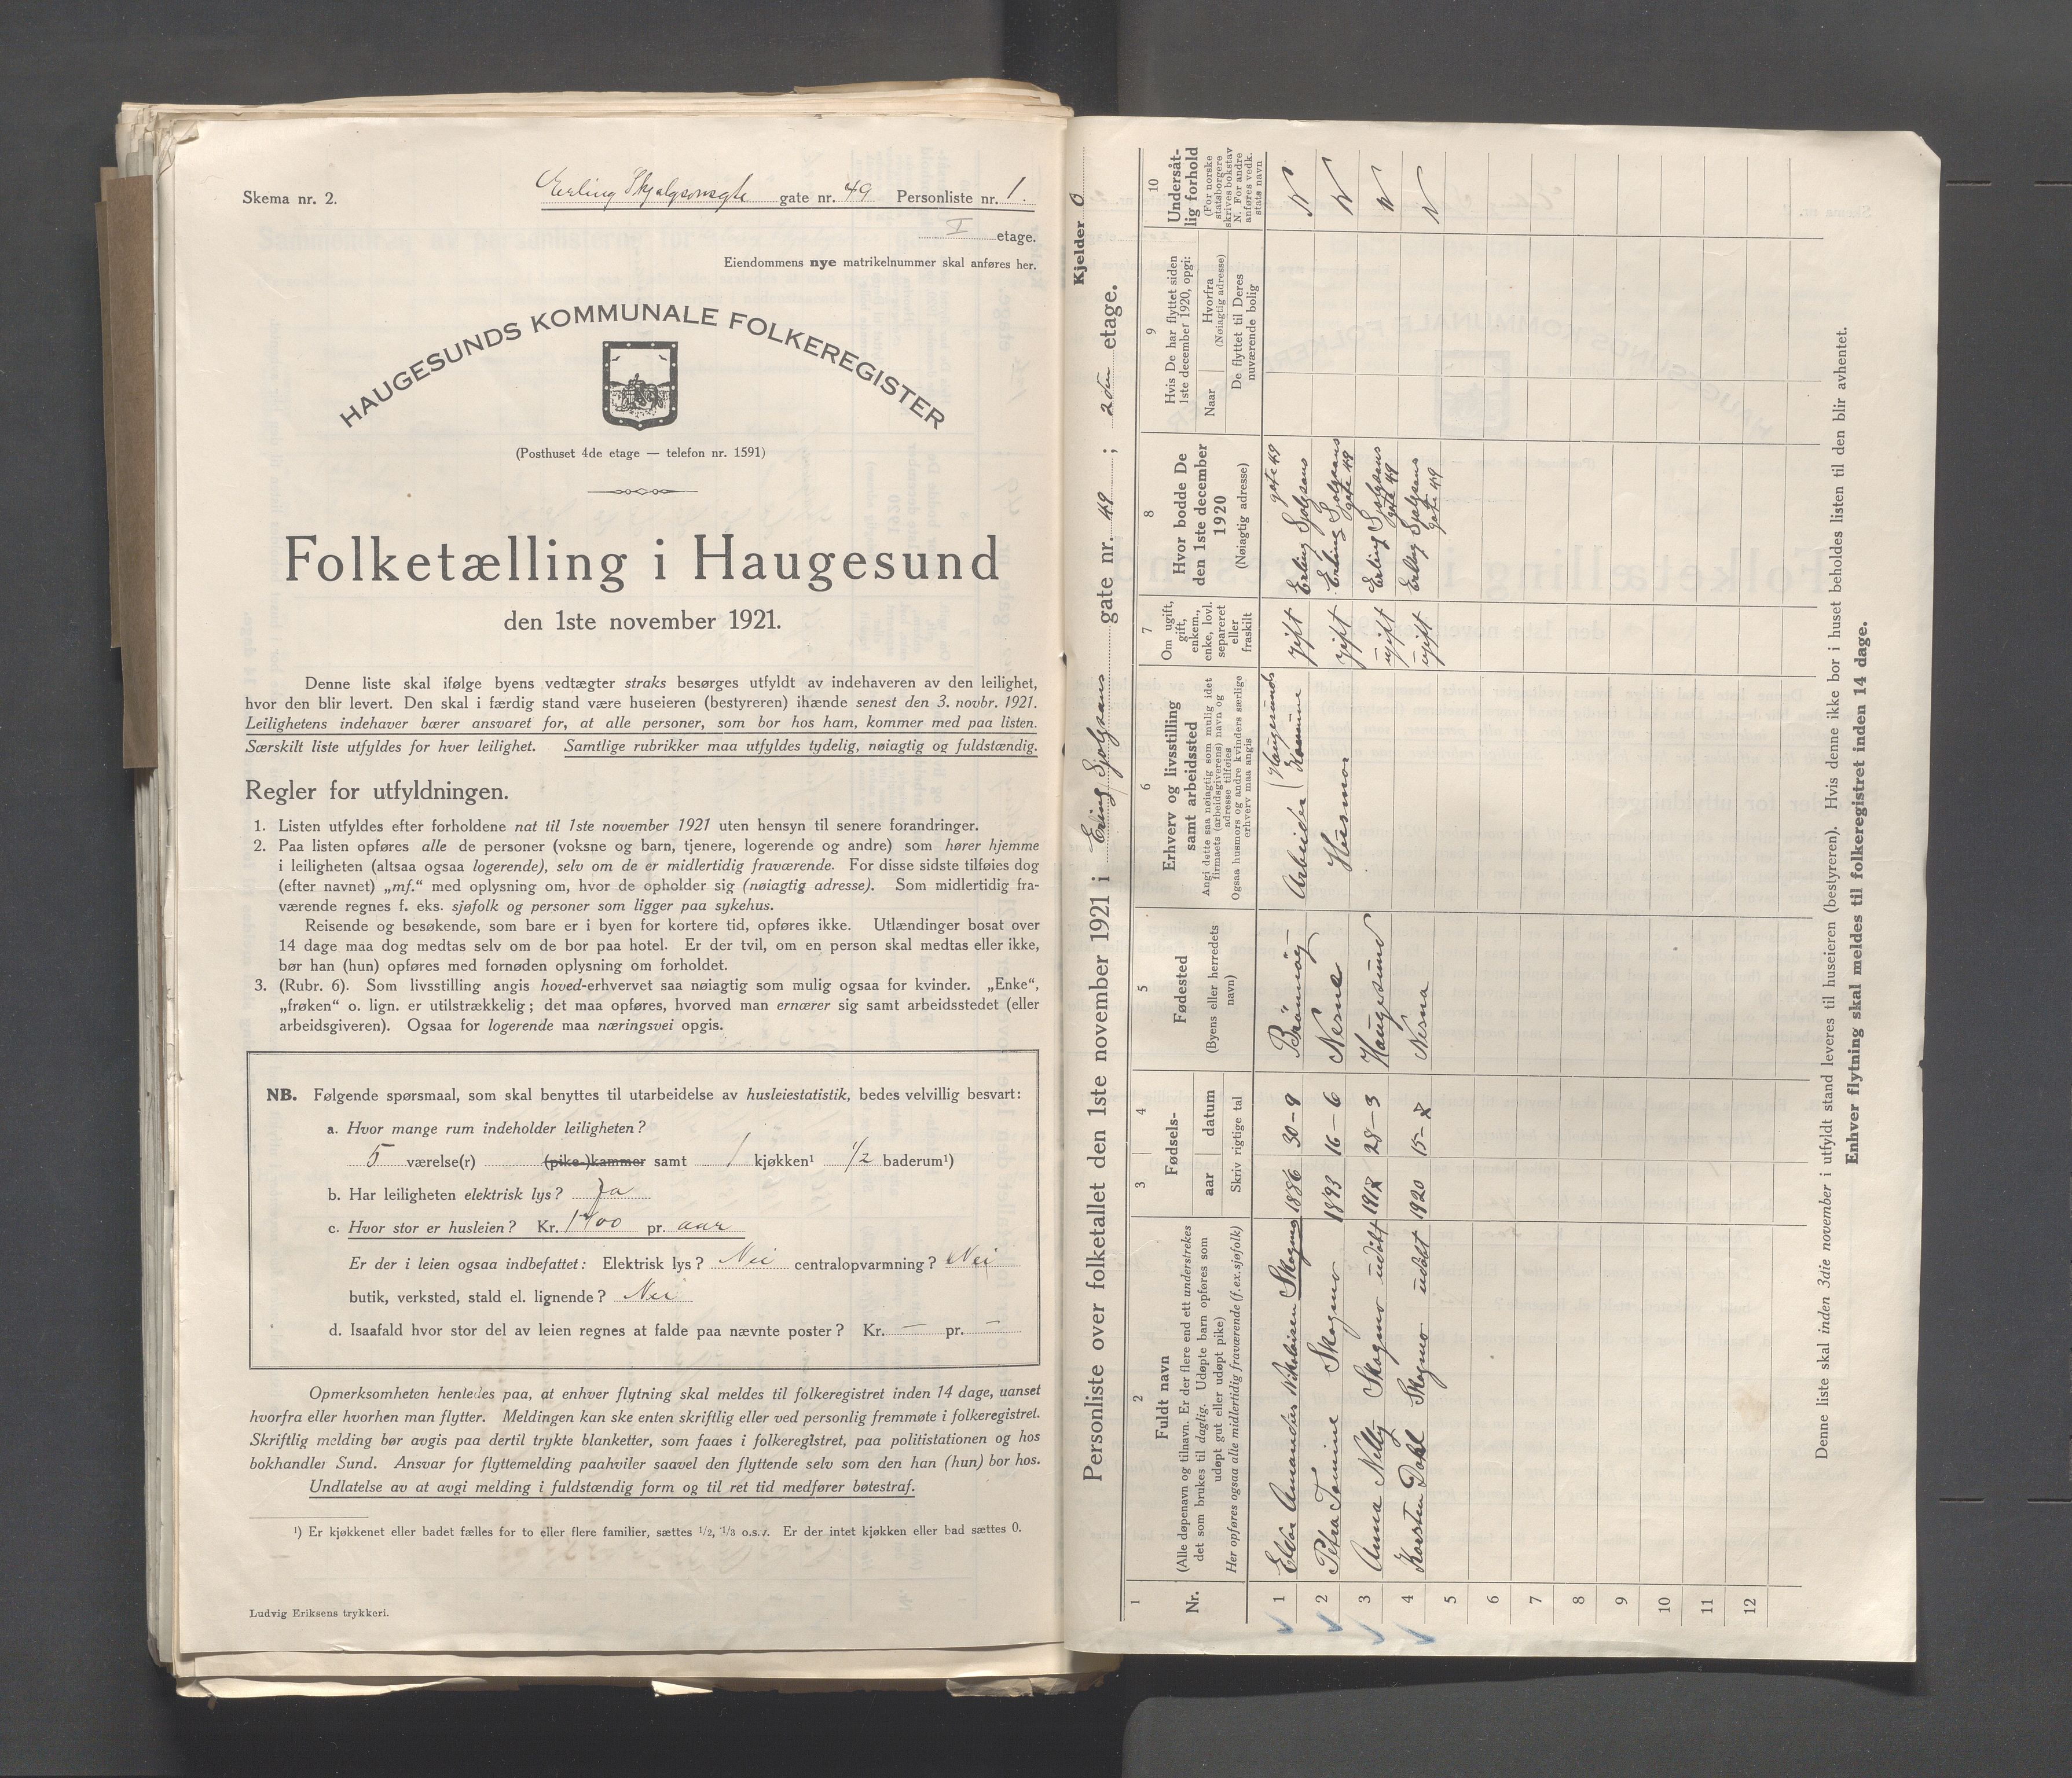 Skema nr. 2.
Erling Skjalgsonsgte gate nr. 49 Personliste nr. 1.
I etage.
Eiendommens nye matrikelnummer skal anføres her.
HAUGESUNDS KOMMUNALE FOLKEREGISTER
(Posthuset 4de etage — telefon nr. 1591)
Folketælling i Haugesund
den 1ste november 1921.
Denne liste skal ifølge byens vedtægter straks besørges utfyldt av indehaveren av den leilighet,
hvor den blir levert. Den skal i færdig stand være huseieren (bestyreren) ihænde senest den 3. novbr. 1921.
Leilighetens indehaver bærer ansvaret for, at alle personer, som bor hos ham, kommer med paa listen.
Særskilt liste utfyldes for hver leilighet. Samtlige rubrikker maa utfyldes tydelig, nøiagtig og fuldstændig.
Regler for utfyldningen.
1. Listen utfyldes efter forholdene nat til 1ste november 1921 uten hensyn til senere forandringer.
2. Paa listen opføres alle de personer (voksne og barn, tjenere, logerende og andre) som hører hjemme
i leiligheten (altsaa ogsaa logerende), selv om de er midlertidig fraværende. For disse sidste tilføies dog
(efter navnet) „mf.“ med oplysning om, hvor de opholder sig (nøiagtig adresse). Som midlertidig fra-
værende regnes f. eks. sjøfolk og personer som ligger paa sykehus.
Reisende og besøkende, som bare er i byen for kortere tid, opføres ikke. Utlændinger bosat over
14 dage maa dog medtas selv om de bor paa hotel. Er der tvil, om en person skal medtas eller ikke,
bør han (hun) opføres med fornøden oplysning om forholdet.
3. (Rubr. 6). Som livsstilling angis hoved-erhvervet saa nøiagtig som mulig ogsaa for kvinder. „Enke“,
„frøken“ o. lign. er utilstrækkelig; det maa opføres, hvorved man ernærer sig samt arbeidsstedet (eller
arbeidsgiveren). Ogsaa for logerende maa næringsvei opgis.
NB. Følgende spørsmaal, som skal benyttes til utarbeidelse av husleiestatistik, bedes velvillig besvart:
a. Hvor mange rum indeholder leiligheten?
5 værelse(r) (pike-)kammer samt 1 kjøkken¹ 1/2 baderum¹)
b. Har leiligheten elektrisk lys? Ja
c. Hvor stor er husleien? Kr. 1400 pr. aar
Er der i leien ogsaa indbefattet: Elektrisk lys? Nei centralopvarmning? Nei
butik, verksted, stald el. lignende? Nei
d. Isaafald hvor stor del av leien regnes at falde paa nævnte poster? Kr. — pr. —
Opmerksomheten henledes paa, at enhver flytning skal meldes til folkeregistret inden 14 dage, uanset
hvorfra eller hvorhen man flytter. Meldingen kan ske enten skriftlig eller ved personlig fremmøte i folkeregistret.
Skriftlig melding bør avgis paa dertil trykte blanketter, som faaes i folkeregistret, paa politistationen og hos
bokhandler Sund. Ansvar for flyttemelding paahviler saavel den flyttende selv som den han (hun) bor hos.
Undlatelse av at avgi melding i fuldstændig form og til ret tid medfører bøtestraf.
¹) Er kjøkkenet eller badet fælles for to eller flere familier, sættes 1/2, 1/3 o.s.v. Er der intet kjøkken eller bad sættes 0.
Ludvig Eriksens trykkeri.
Kjelder 0
Personliste over folketallet den 1ste november 1921 i Erling Sjolgsons gate nr. 49 ; 2den etage.
1 2 3 4 5 6 7 8 9 10
Nr.
Fuldt navn
(Alle døpenavn og tilnavn. Er der flere end ett understrekes
det som brukes til daglig. Udøpte barn opføres som
udøpt gut eller udøpt pike)
Her opføres ogsaa alle midlertidig fraværende (f. ex. sjøfolk)
Fødsels-
aar datum
Skriv rigtige tal
Fødested
(Byens eller herredets
navn)
Erhverv og livsstilling
samt arbeidssted
Angi dette saa nøiagtig som mulig idet
firmaets (arbeidsgiverens) navn og
adresse tilføies
Ogsaa husmors og andre kvinders særlige
erhverv maa angis
Om ugift,
gift,
enkem.,
enke, lovl.
separeret
eller
fraskilt
Hvor bodde De
den 1ste december
1920
(Nøiagtig adresse)
Hvis De har flyttet siden
1ste december 1920, opgi:
Naar
Hvorfra
(Nøiagtig adresse)
De flyttet til Deres
nuværende bolig
Undersåt-
lig forhold
(For norske
statsborgere
skrives bokstav
N. For andre
anføres vedk.
stats navn
1 Eldor Amandus Nikolaisen Skogmo 1886 30-9 Brönnöy Arbeider (Haugesunds Komune gift Erling Sjolgsons gate 49 N
2 Petra Tomine Skogmo 1893 16-6 Nesne Husmor gift Erling Sjolgsons gate 49 N
3 Anna Nelly Skogmo udöbt 1917 28-3 Haugesund ugift Erling Sjolgsons gate 49 N
4 Karsten Dahl Skogmo udöbt 1920 15-7 Nesna ugift Erling Sjolgsons gate 49 N
5
6
7
8
9
10
11
12
Denne liste skal inden 3die november i utfyldt stand leveres til huseieren (bestyreren). Hvis denne ikke bor i huset beholdes listen til den blir avhentet.
Enhver flytning skal meldes til folkeregistret inden 14 dage.